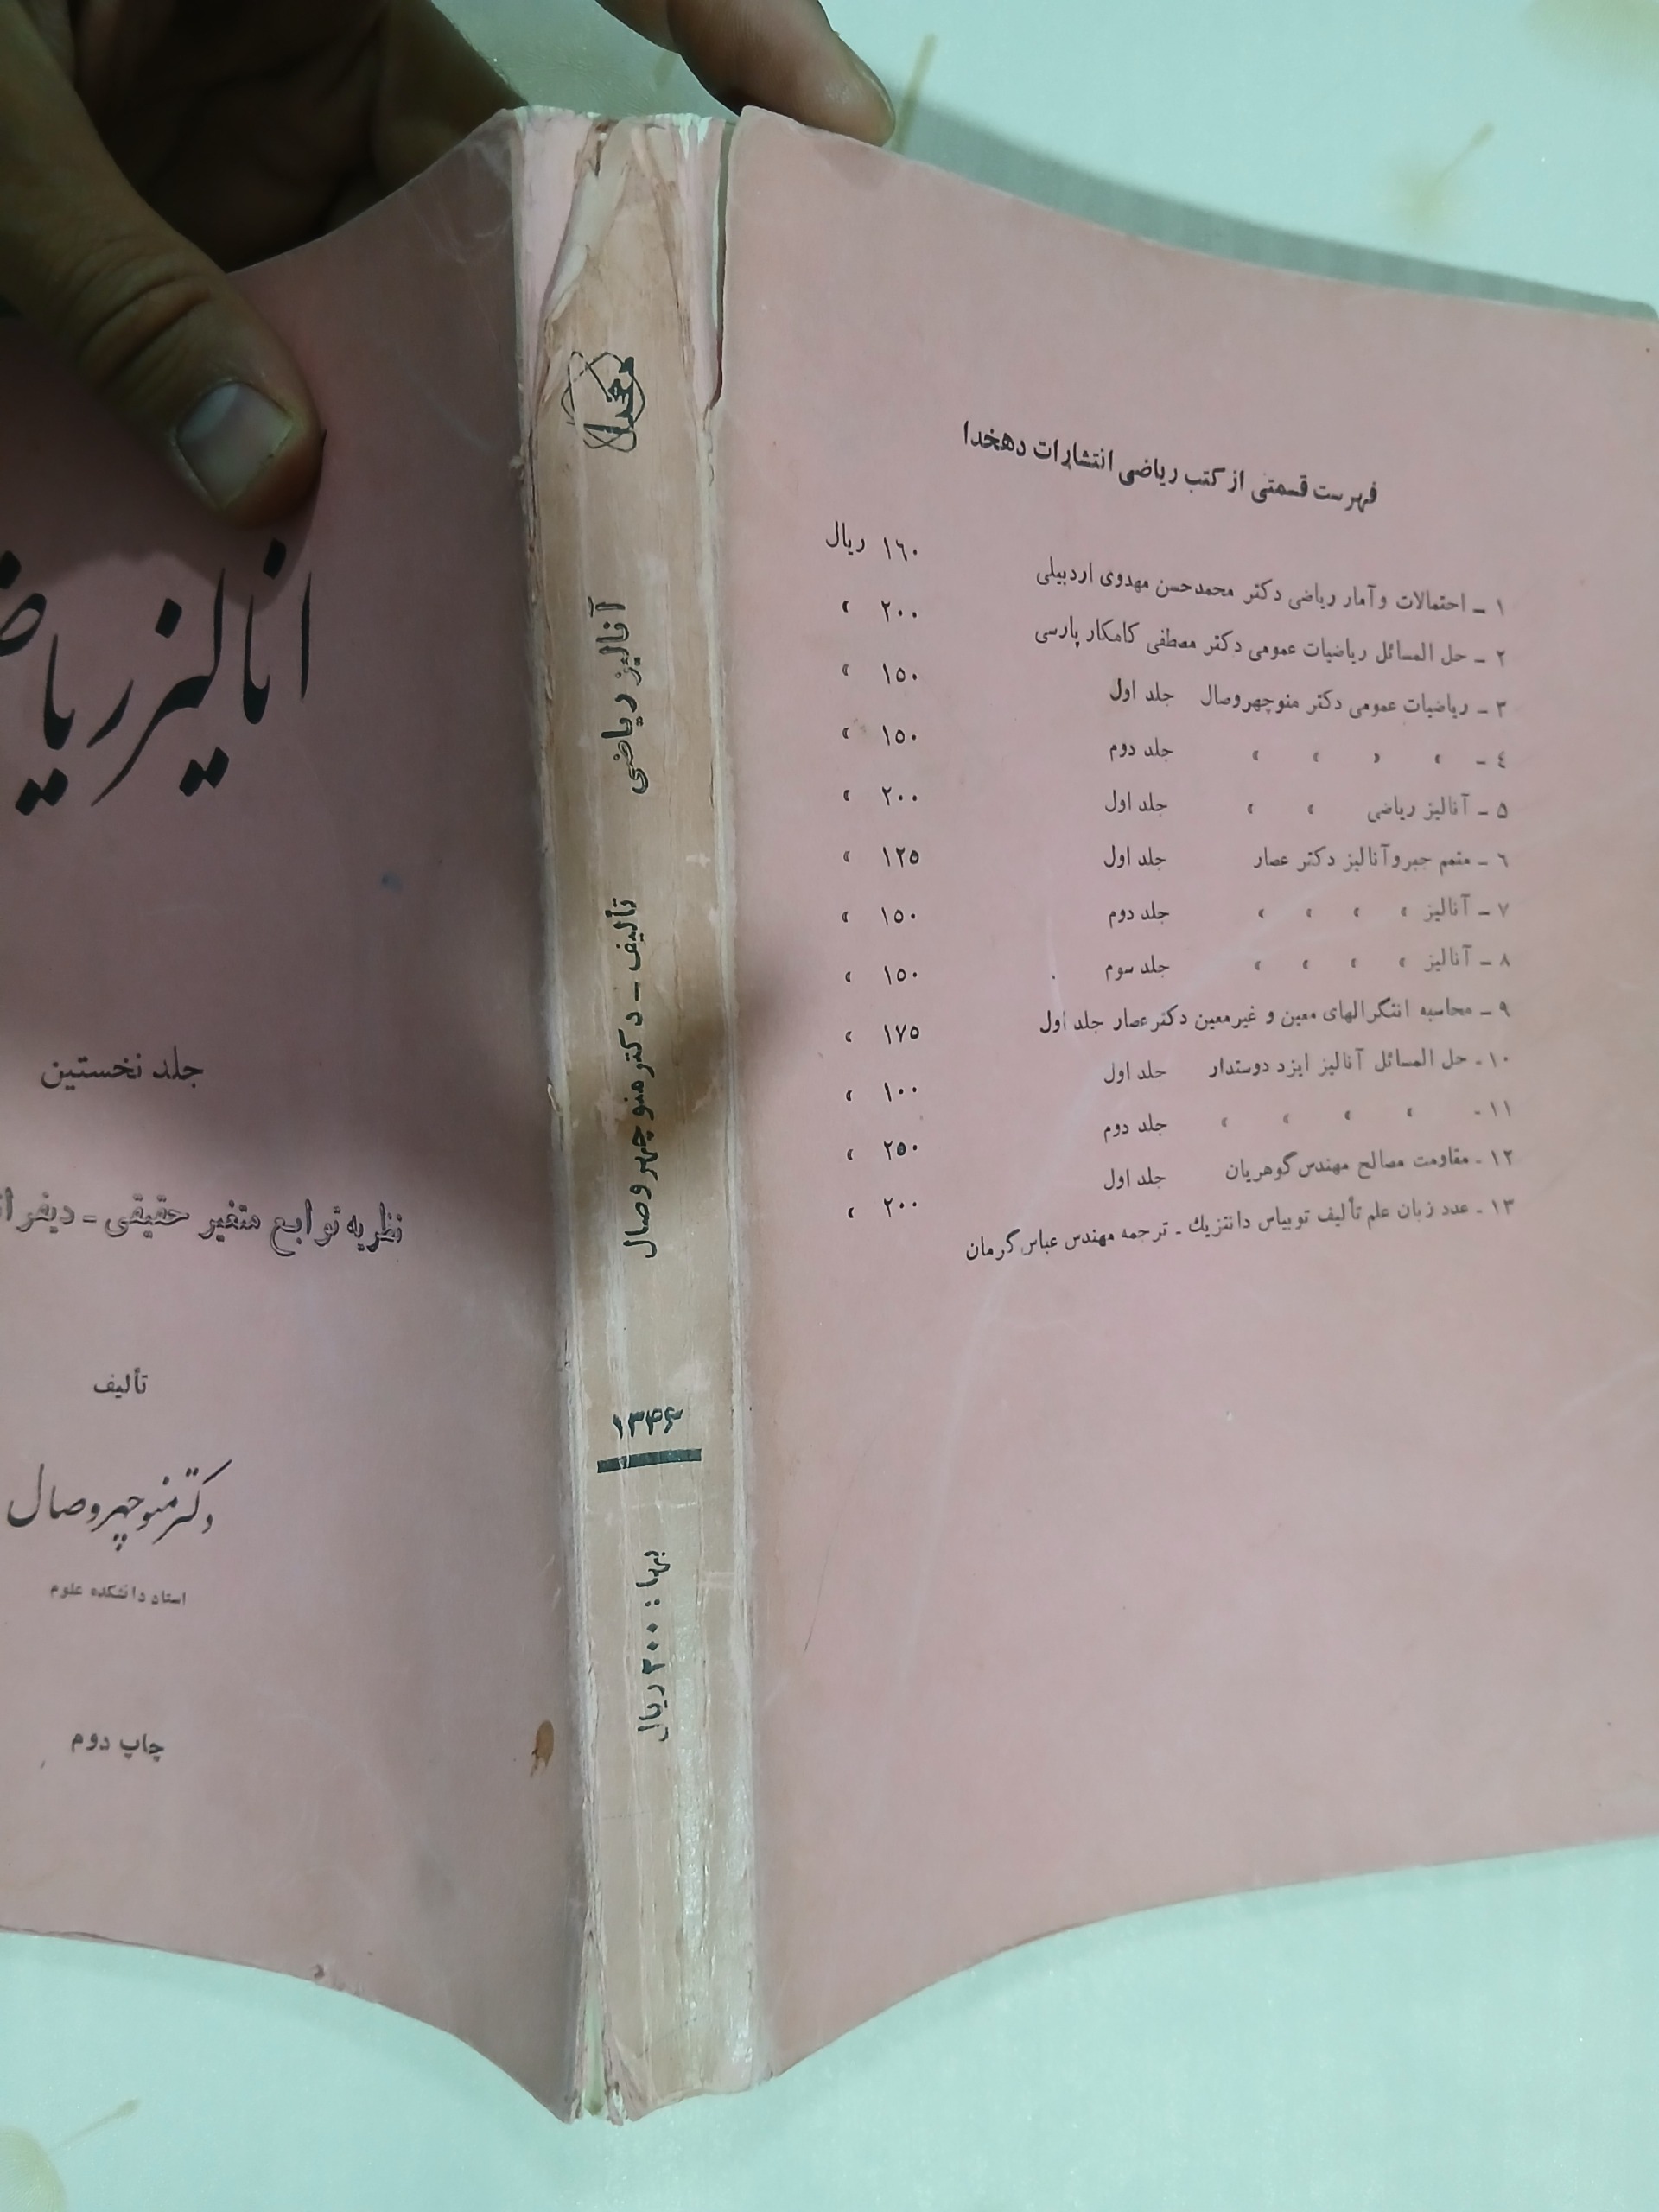 آنالیز ریاض
جلد نخستین
نظریه توابع متغیر حقیقی - دیفرا
تألیف
دکتر منوچهر وصال
استاد دانشکده علوم
چاپ دوم
دهخدا
آنالیز ریاضی
تألیف - دکتر منوچهر وصال
۱۳۴۶
بها : ۲۰۰ ریال
فهرست قسمتی از کتب ریاضی انتشارات دهخدا
۱ - احتمالات و آمار ریاضی دکتر محمدحسن مهدوی اردبیلی ۱۶۰ ریال
۲ - حل المسائل ریاضیات عمومی دکتر مصطفی کامکار پارسی ۲۰۰ »
۳ - ریاضیات عمومی دکتر منوچهر وصال جلد اول ۱۵۰ »
۴ - » » » » جلد دوم ۱۵۰ »
۵ - آنالیز ریاضی » » جلد اول ۲۰۰ »
۶ - متمم جبر و آنالیز دکتر عصار جلد اول ۱۲۵ »
۷ - آنالیز » » » » جلد دوم ۱۵۰ »
۸ - آنالیز » » » » جلد سوم ۱۵۰ »
۹ - محاسبه انتگرالهای معین و غیرمعین دکتر عصار جلد اول ۱۷۵ »
۱۰ - حل المسائل آنالیز ایزد دوستدار جلد اول ۱۰۰ »
۱۱ - » » » » جلد دوم ۲۵۰ »
۱۲ - مقاومت مصالح مهندس گوهریان جلد اول ۲۰۰ »
۱۳ - عدد زبان علم تألیف توبیاس دانتزیك - ترجمه مهندس عباس گرمان